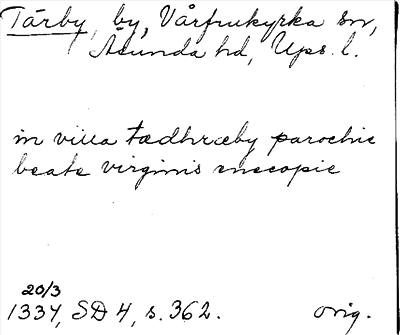 Tärby, by, Vårfrukyrka sn,
Åsunda hd, Upps. l.
in villa tædhræby parochie
beate virginis enecopie
20/3
1334, SD 4, s. 362. orig.